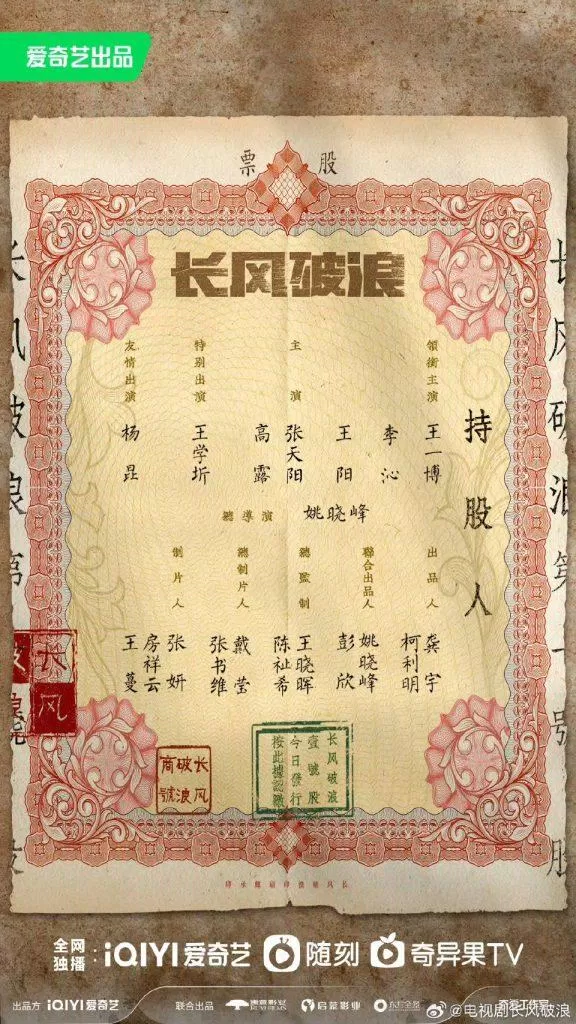 爱奇艺出品
股票
长风破浪
持股人
領銜主演
王一博
李沁
王阳
主演
张天阳
高露
特别出演
王学圻
友情出演
杨昆
總導演
姚晓峰
出品人
龚宇
柯利明
聯合出品人
姚晓峰
彭欣
總監制
王晓晖
陈祉希
總制片人
戴莹
张书维
制片人
张妍
房祥云
王蔓
长风破浪
壹號股
今日發行
按此據認購
长风
破浪
商號
长风
全网独播：iQIYI爱奇艺 随刻 奇异果TV
出品方 iQIYI爱奇艺 联合出品 启蒙影业
@电视剧长风破浪